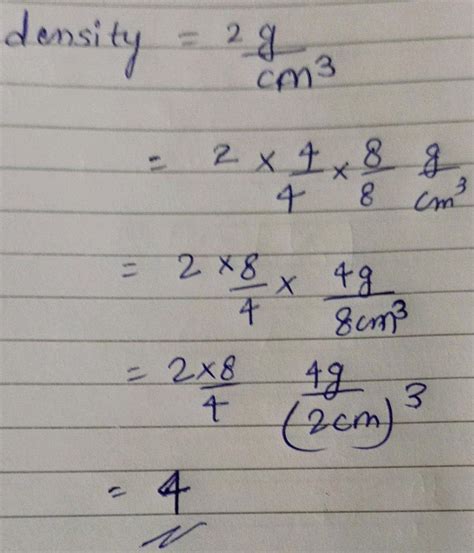 density = 2 g/cm³
= 2 × 4/4 × 8/8 g/cm³
= 2 × 8/4 × 4g/8cm³
= 2×8/4 4g/(2cm)³
= 4